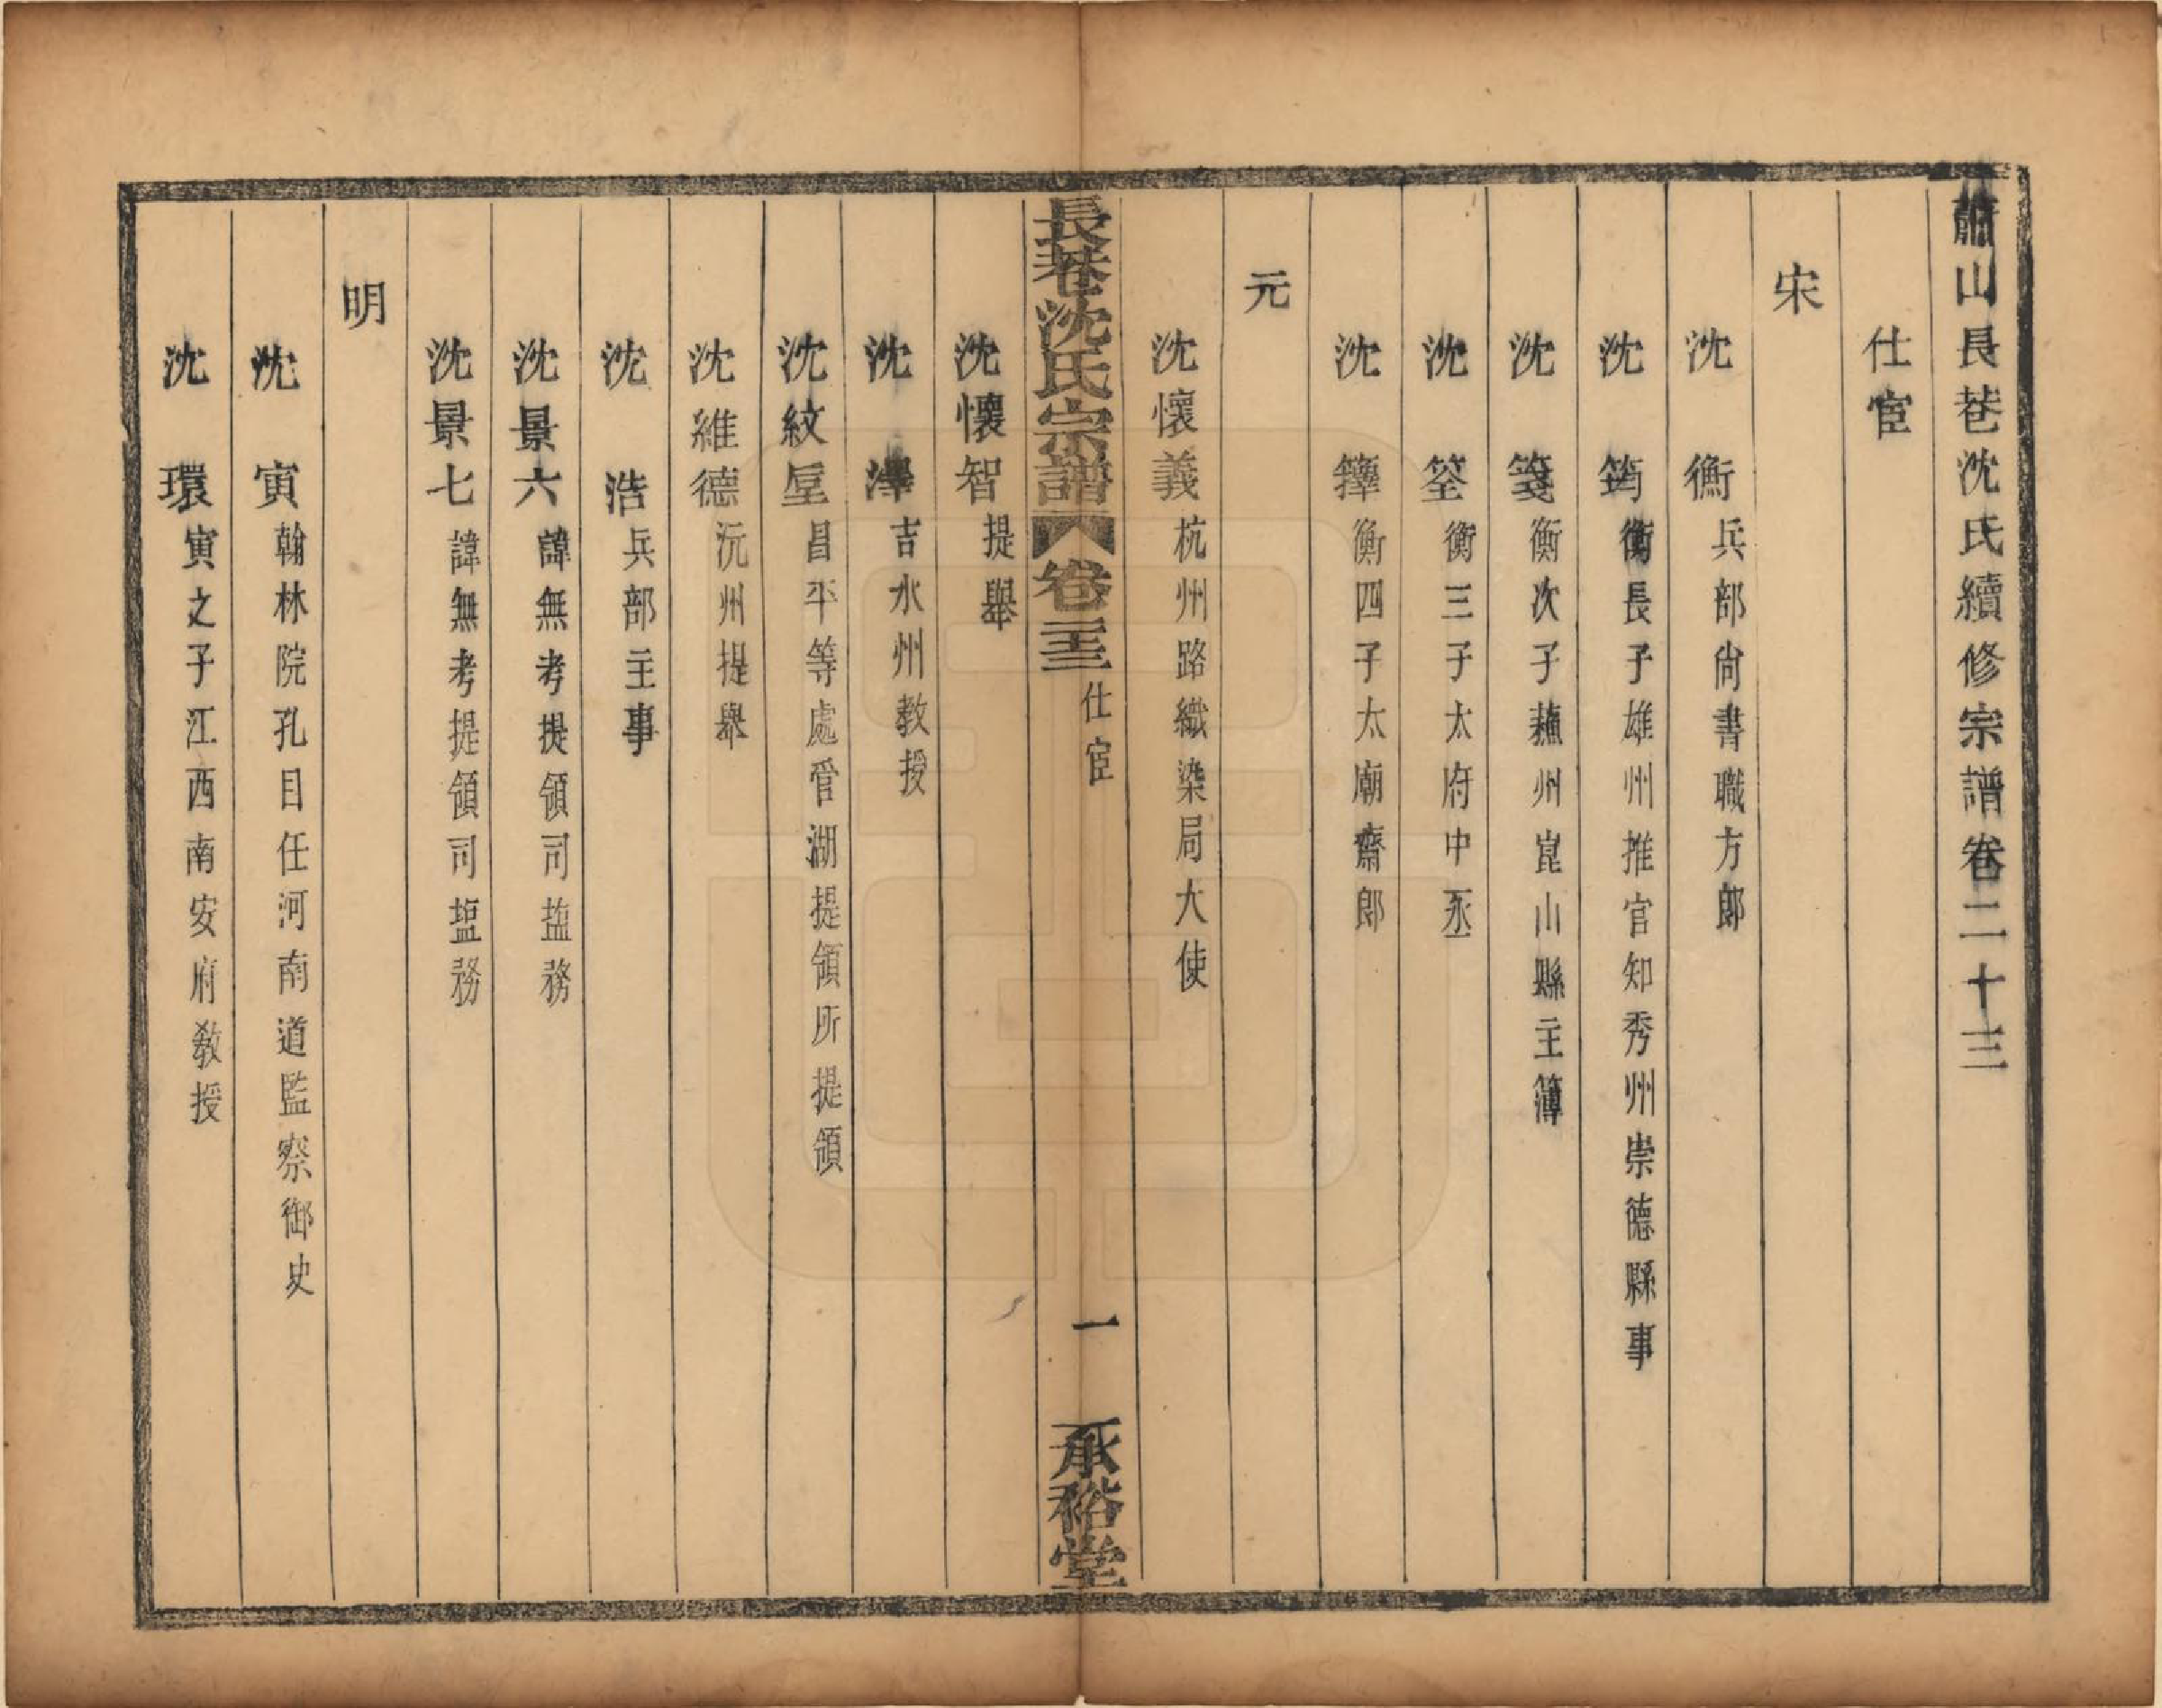 蕭山長巷沈氏續修宗譜卷二十三
仕宦
宋
沈衡 兵部尙書職方郎
沈筠 衡長子雄州推官知秀州崇德縣事
沈箋 衡次子蘓州崑山縣主簿
沈筌 衡三子太府中丞
沈籜 衡四子太廟齋郎
元
沈懷義 杭州路織染局大使
長巷沈氏宗譜 卷二十三 仕宦 一 承裕堂
沈懷智 提舉
沈澤 吉水州教授
沈紋垕 昌平等處管湖提領所提領
沈維德 沅州提舉
沈浩 兵部主事
沈景六 諱無考提領司塩務
沈景七 諱無考提領司塩務
明
沈寅 翰林院孔目任河南道監察御史
沈環 寅之子江西南安府敎授